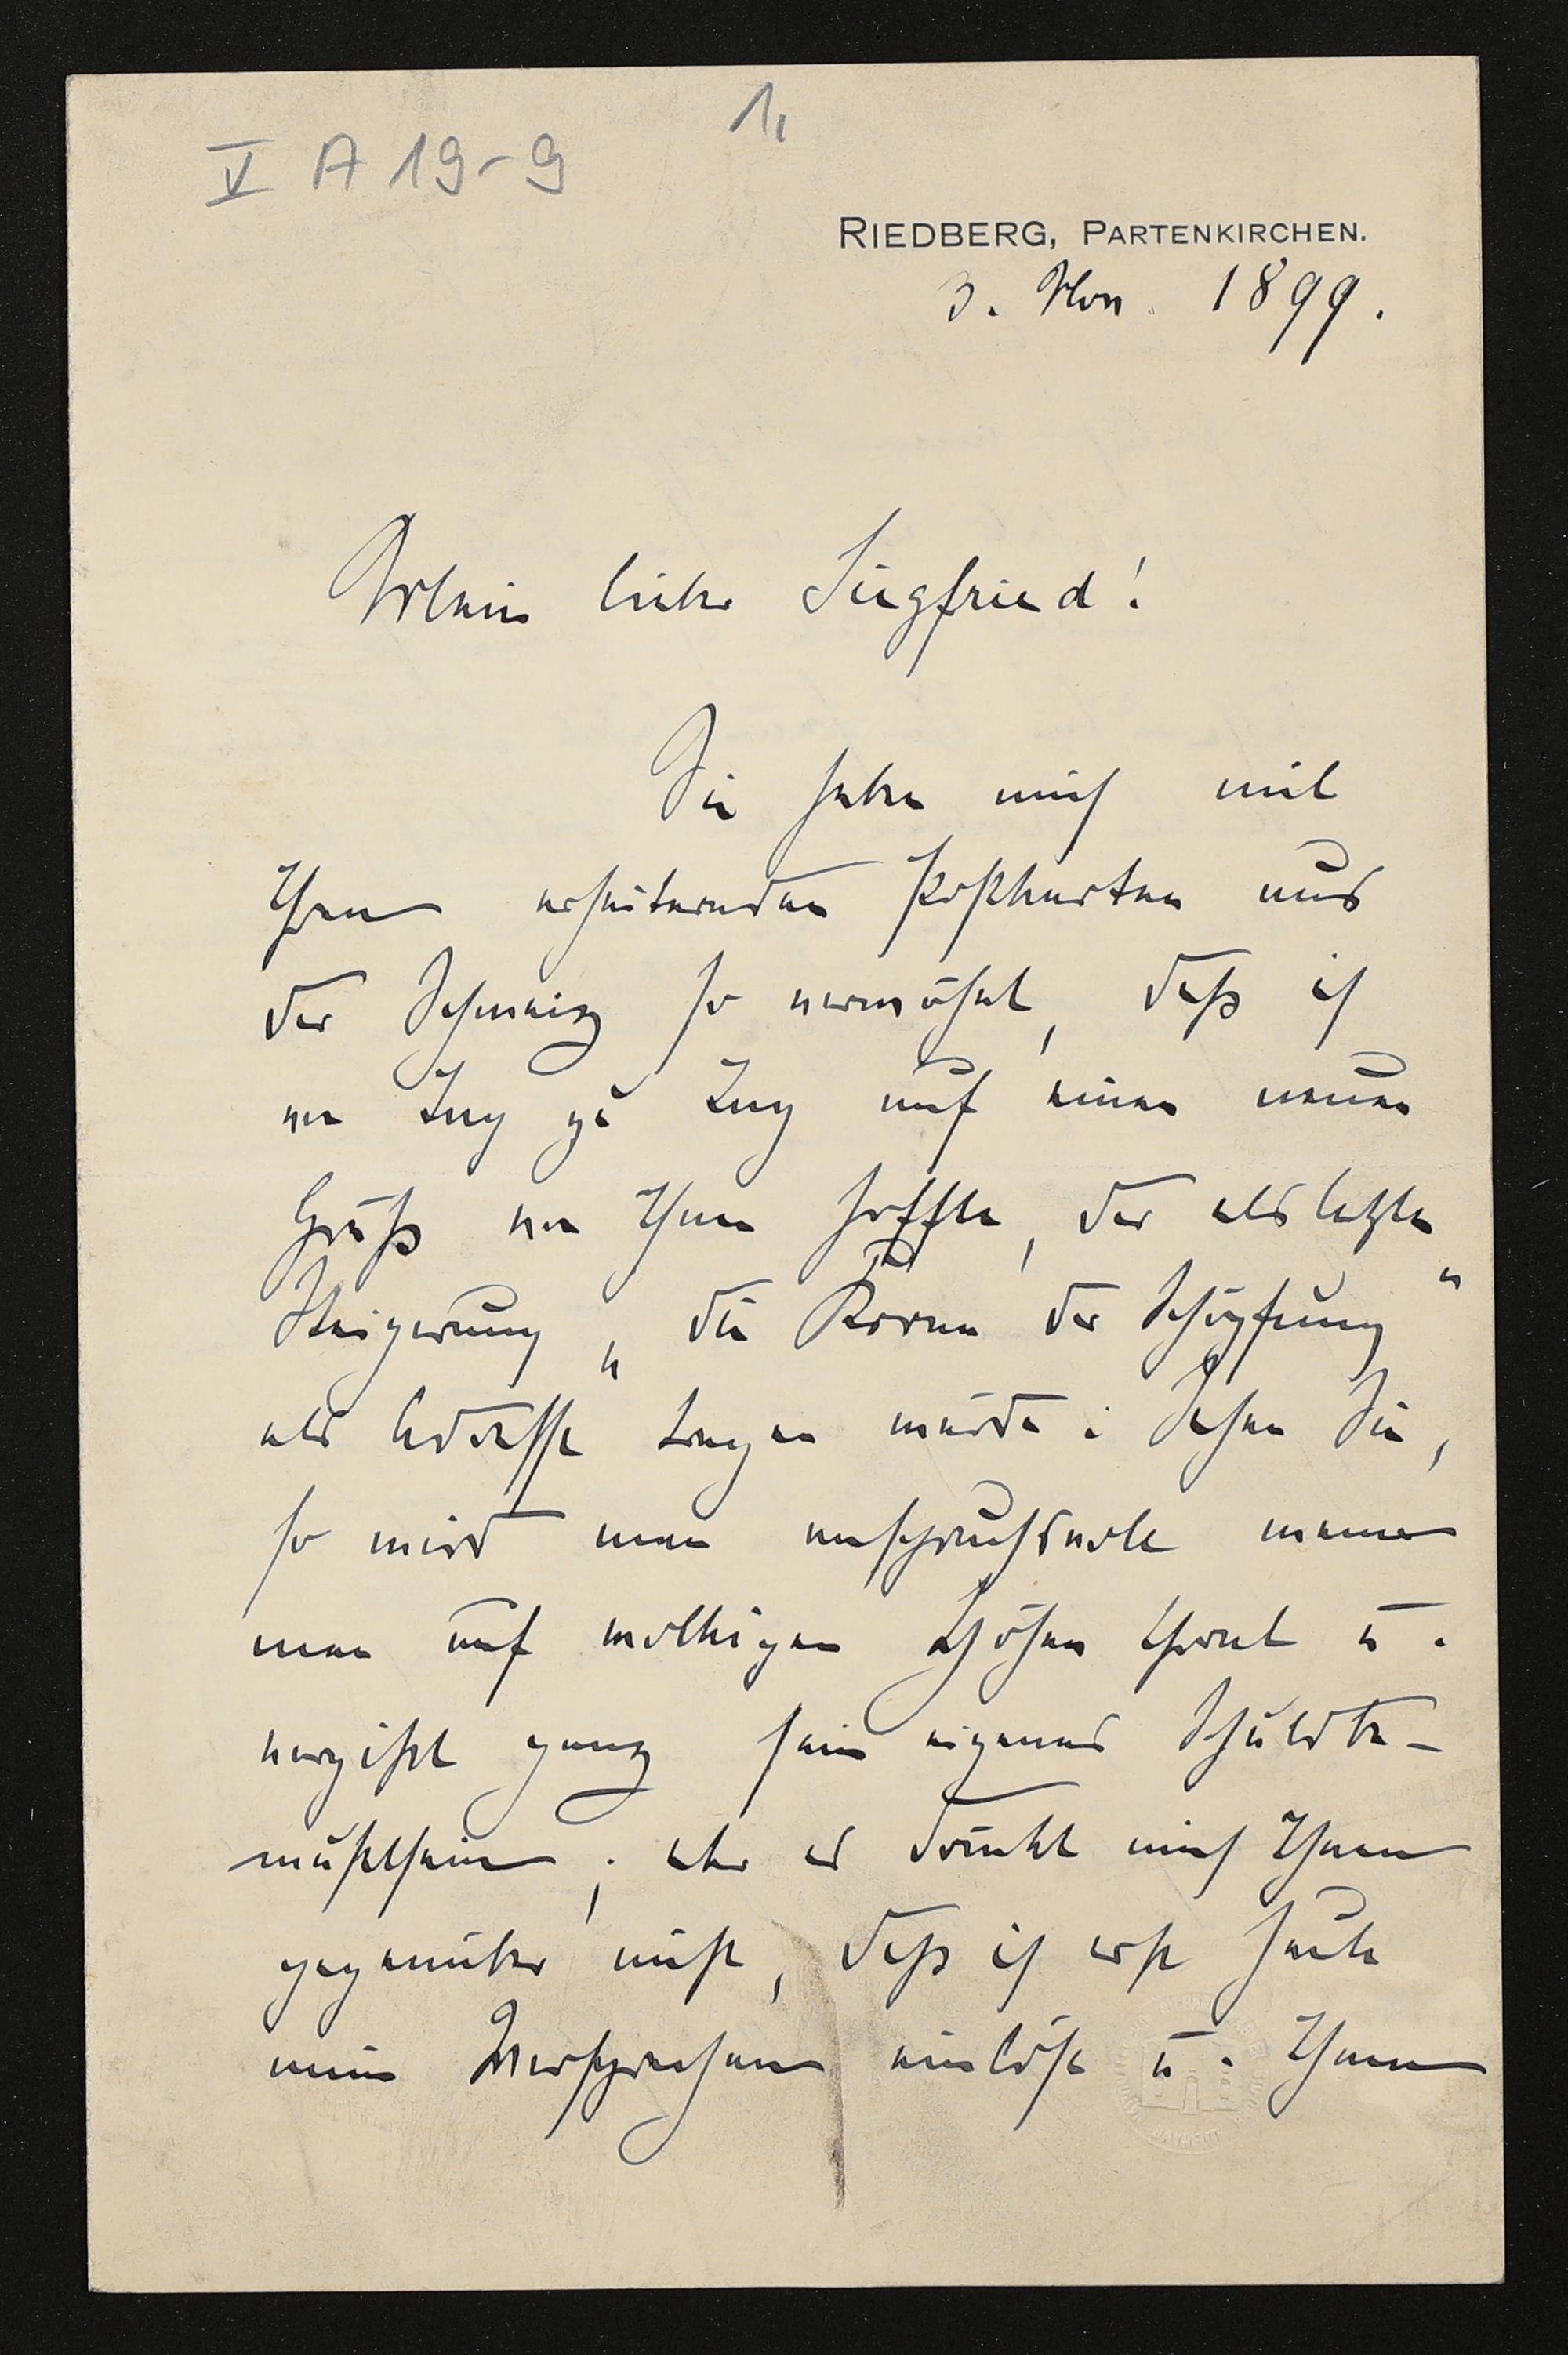 1,
V A 19-9
RIEDBERG, PARTENKIRCHEN.
3. Nov. 1899.
Mein lieber Siegfried!
Sie haben mich mit
Ihren erheiternden Postkarten aus
der Schweiz so verwöhnt, daß ich
von Tag zu Tag auf einen neuen
Gruß von Ihnen hoffte, der als letzte
Steigerung „die Krone der Schöpfung"
als Adresse tragen würde: Sehen Sie,
so wird man anspruchsvoll wenn
man auf wolkigen Höhen thront u.
vergißt ganz sein eigenes Schuldbe-
wußtsein; aber es drückt mich Ihnen
gegenüber nicht, daß ich erst heute
mein Versprechen einlöse u. Ihnen